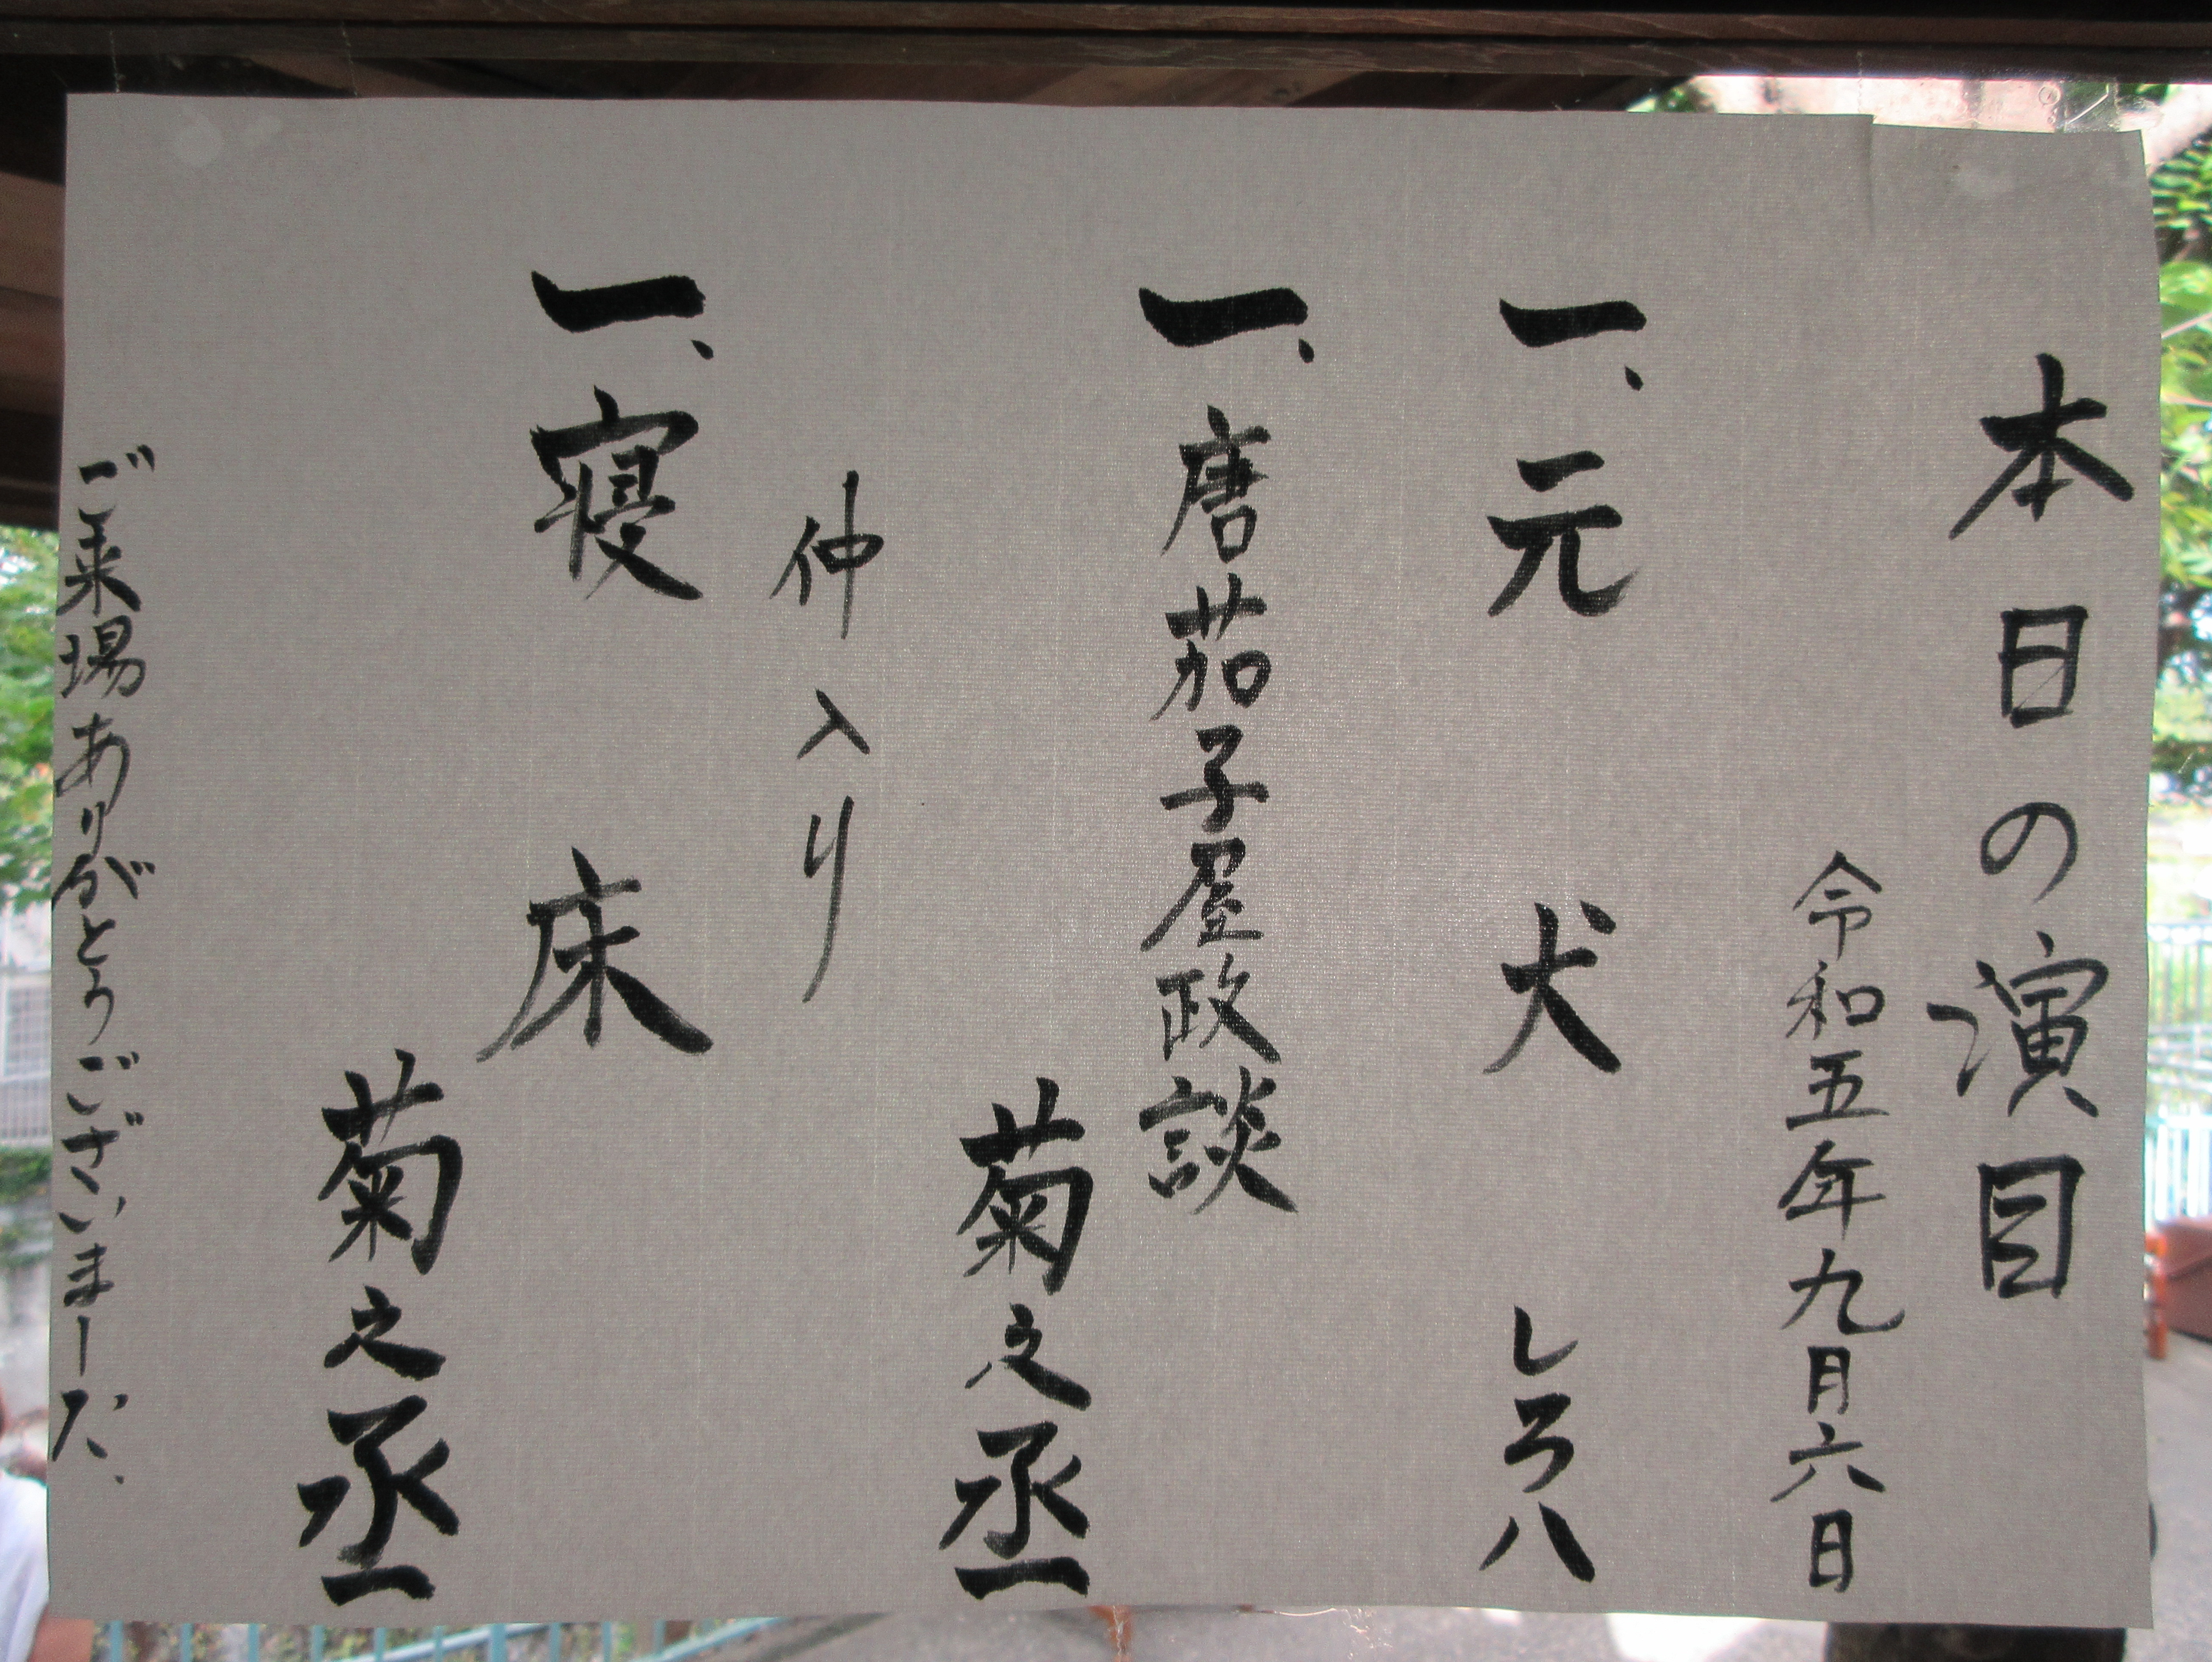 本日の演目
令和五年九月六日
一、元犬
しろ八
一、唐茄子屋政談
菊之丞
仲入り
一、寝床
菊之丞
ご来場ありがとうございました、